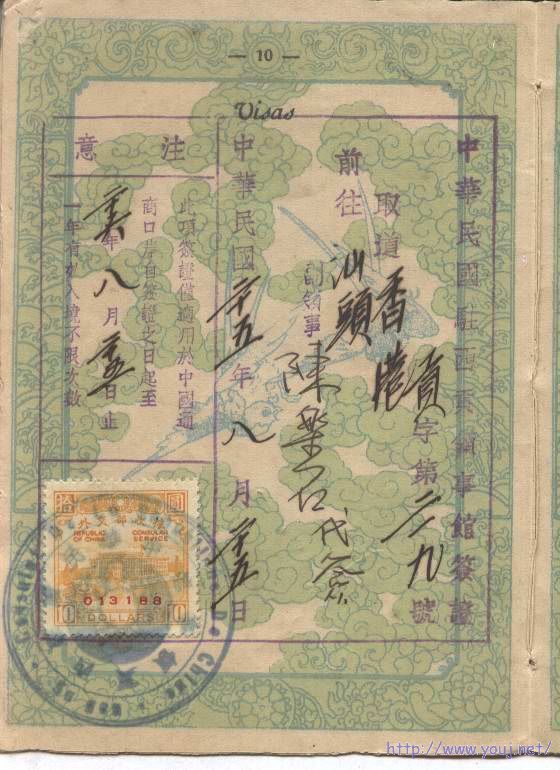 — 10 —
Visas
中華民國駐西貢領事館簽證
貢字第二一九號
取道香港
前往汕頭
副領事 陳 代簽
中華民國廿五年八月廿五日
注意
此項簽證僅適用於中國通
商口岸自簽證之日起至
年八月廿五日止
一年有效入境不限次數
拾 圓
外交部收費
REPUBLIC OF CHINA
CONSULAR SERVICE
013188
10 DOLLARS 10
http://www.youj.net/